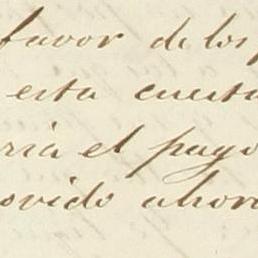 favor de los p
esta cuesta
ria el pago
ovido ahor